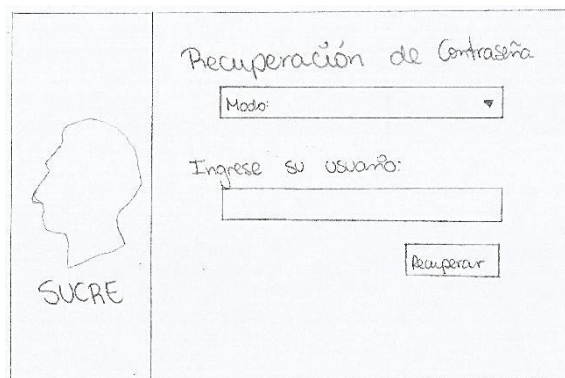 Recuperación de Contraseña
Modo:
Ingrese su usuario:
Recuperar
SUCRE